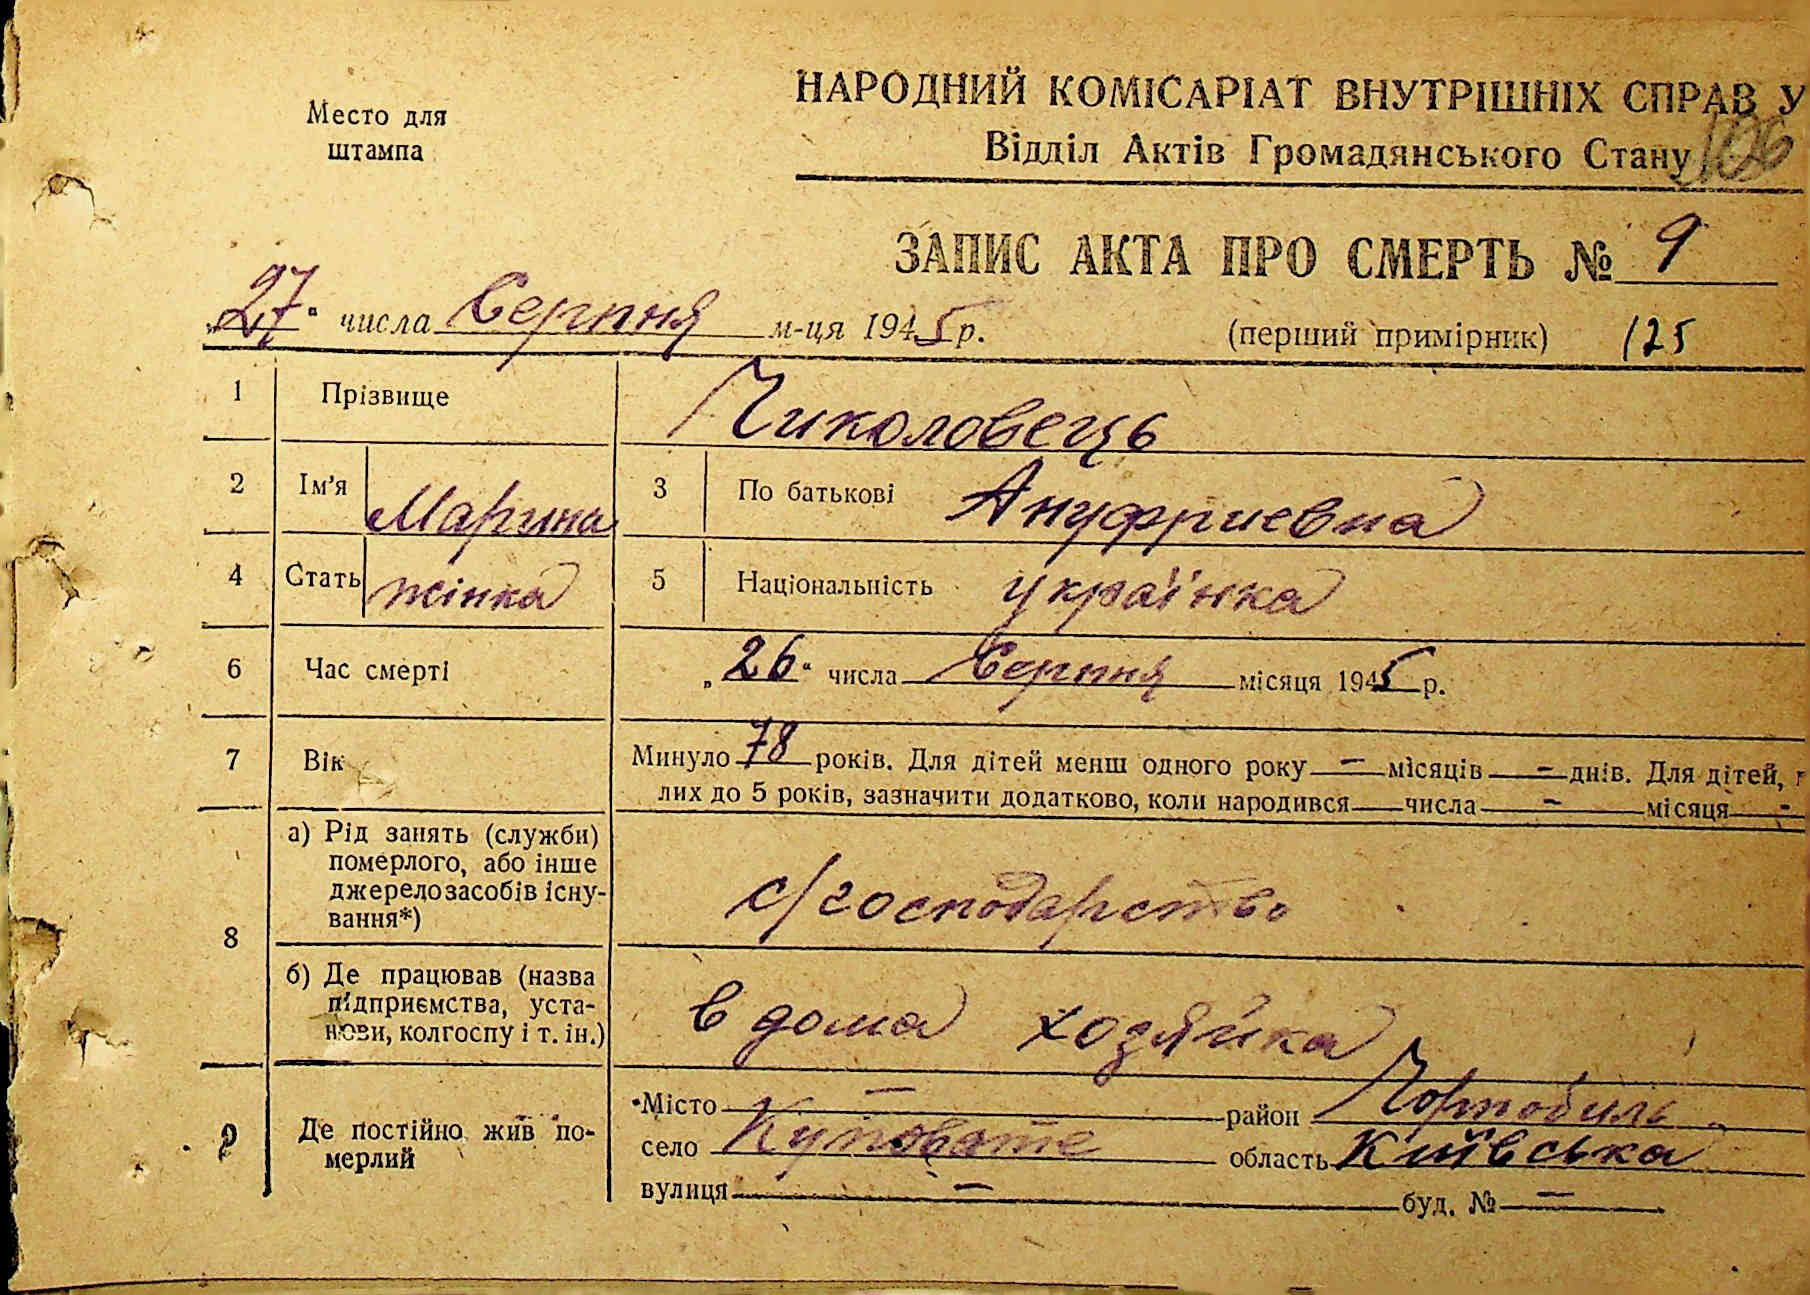 Место для
штампа
НАРОДНИЙ КОМІСАРІАТ ВНУТРІШНІХ СПРАВ У
Відділ Актів Громадянського Стану
106
ЗАПИС АКТА ПРО СМЕРТЬ № 9
„27“ числа Серпня м-ця 1945 р. (перший примірник) 125
1 Прізвище Чиколовець
2 Ім'я Марина 3 По батькові Ануфриевна
4 Стать жінка 5 Національність українка
6 Час смерті „26“ числа Серпня місяця 1945 р.
7 Вік Минуло 78 років. Для дітей менш одного року — місяців — днів. Для дітей,
лих до 5 років, зазначити додатково, коли народився числа — місяця -
8 а) Рід занять (служби)
померлого, або інше
джерело засобів існу-
вання*)
с/господарство
б) Де працював (назва
підприємства, уста-
нови, колгоспу і т. ін.)
в дома хозяйка
9 Де постійно жив по-
мерлий
Місто — район Чорнобиль
село Куповате область Київська
вулиця — буд. № —